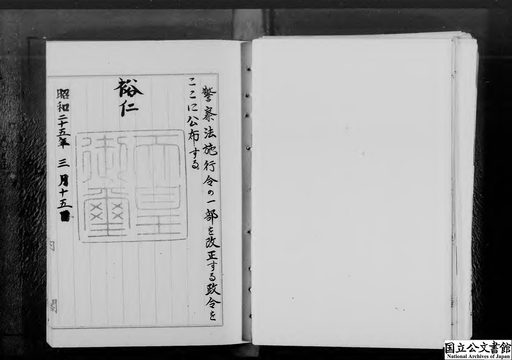 警察法施行令の一部を改正する政令を
ここに公布する
裕仁
天皇
御璽
昭和二十五年三月十五日
国立公文書館
National Archives of Japan